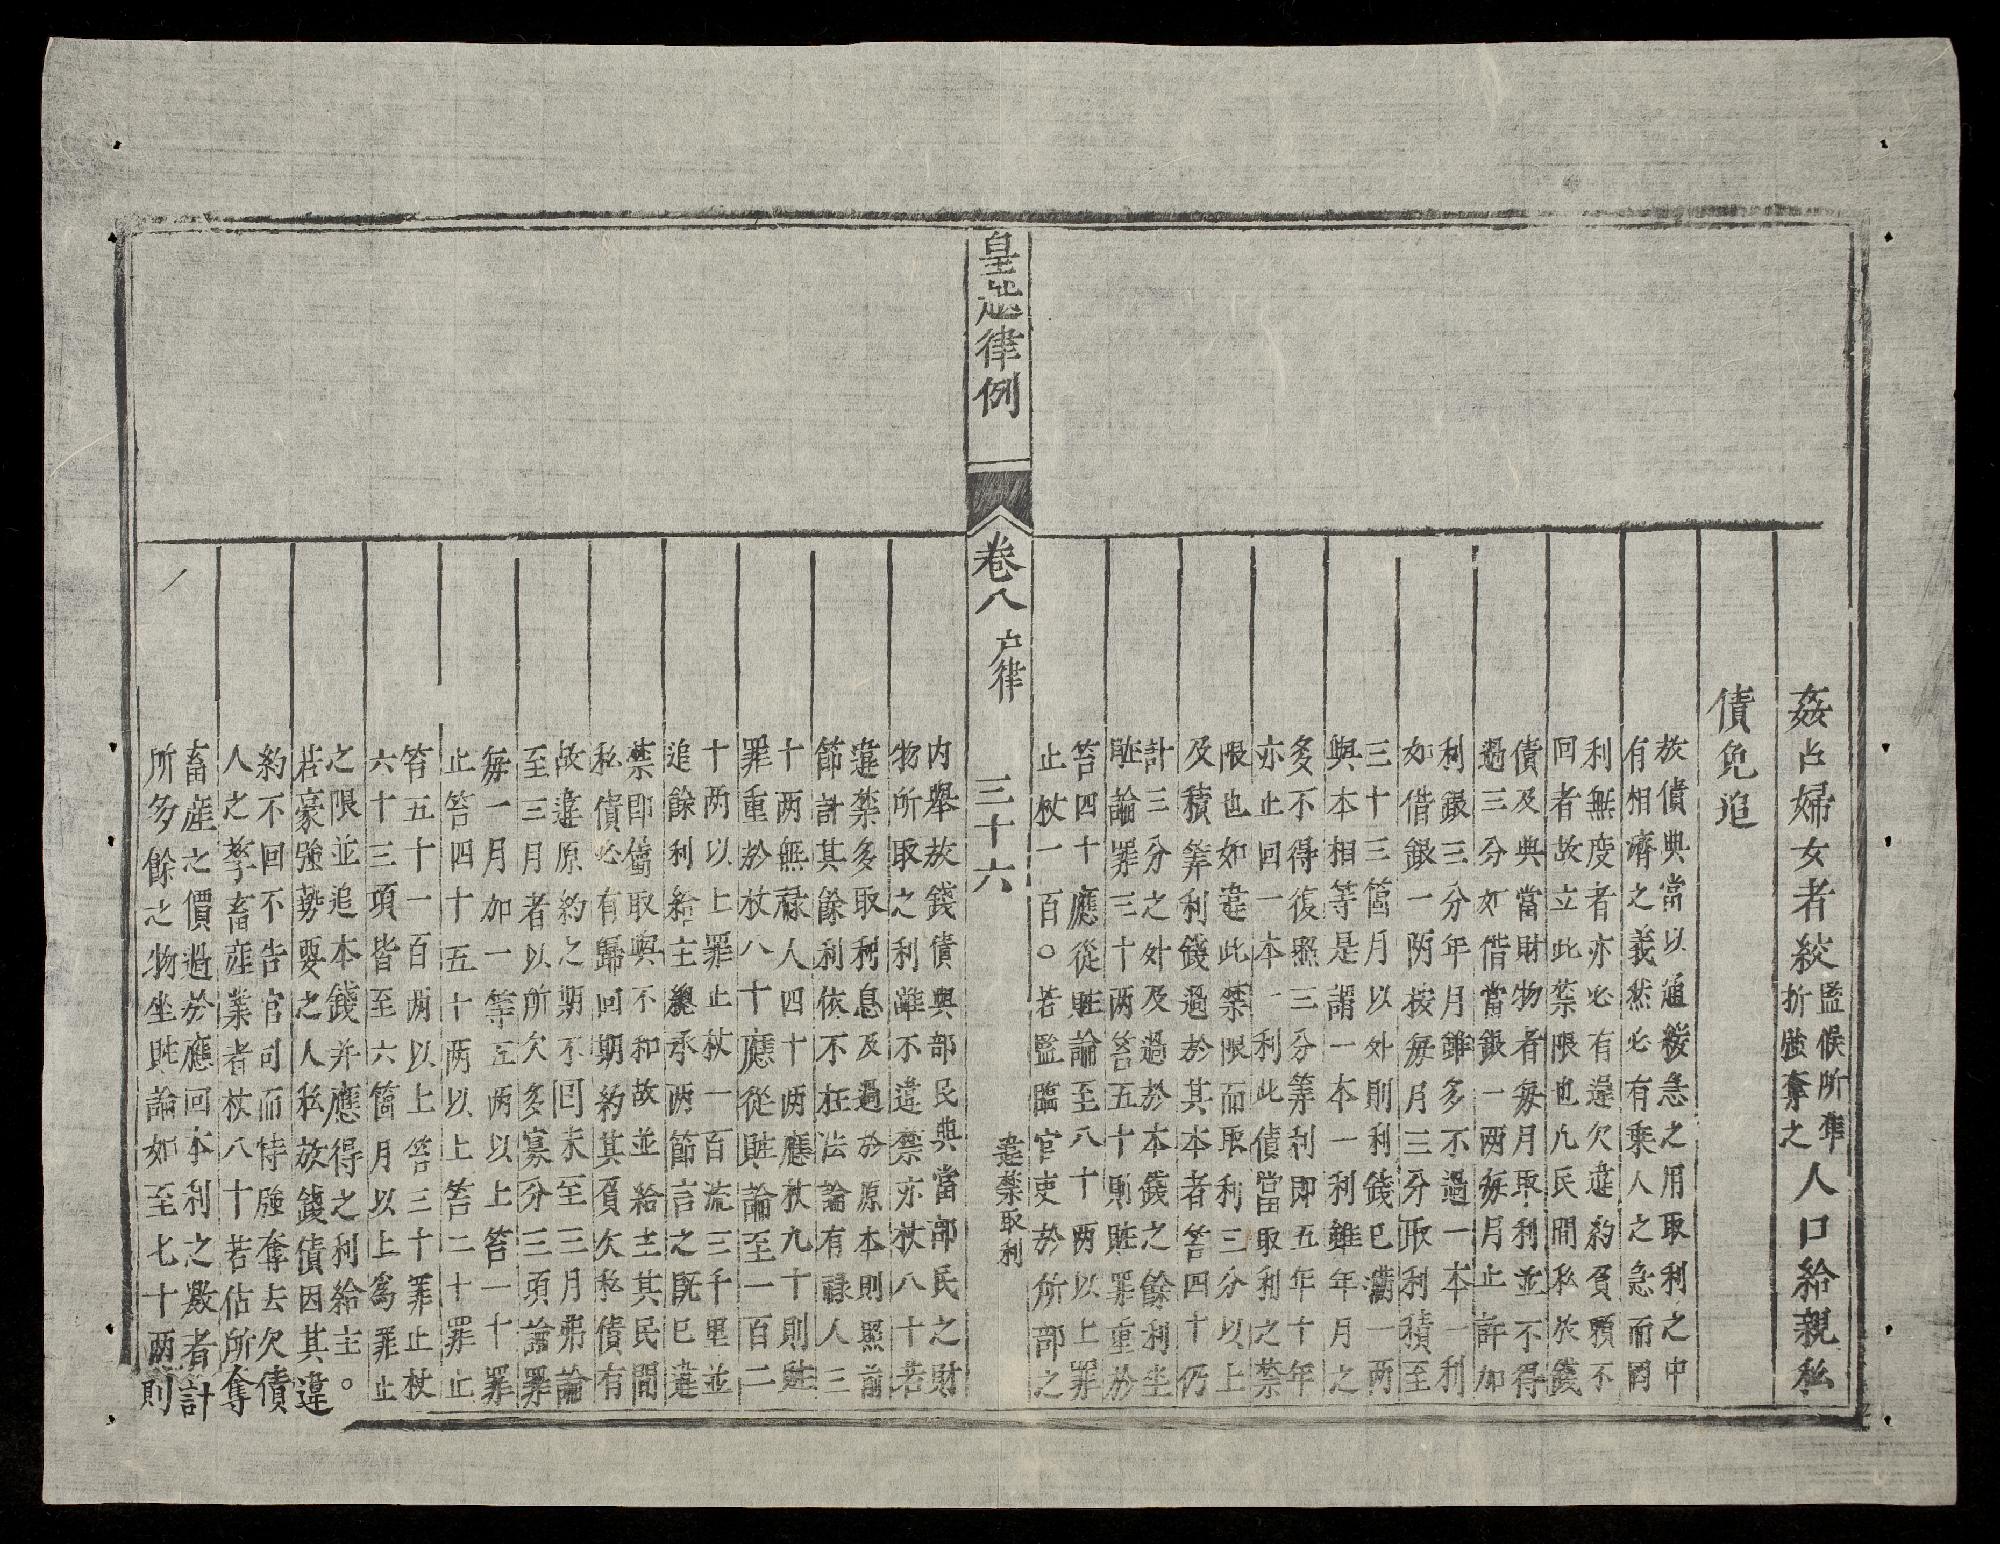 姦占婦女者絞監候所準折強奪之人口給親私
債免追
放債典當以通緩急之用取利之中
有相濟之義然必有乘人之急而罔
利無度者亦必有違欠違約負賴不
回者故立此禁限也凡民間私放錢
債及典當財物者每月取利並不得
過三分如借當銀一两每月止許加
利銀三分年月雖多不過一本一利
如借銀一两按每月三分取利積至
三十三箇月以外則利錢已滿一两
與本相等是謂一本一利雖年月之
多不得復照三分筭利即五年十年
亦止回一本一利此債當取利之禁
限也如違此禁限而取利三分以上
及積筭利錢過於其本者笞四十仍
計三分之外及過於本錢之餘利坐
賍論罪三十两笞五十則賍罪重於
笞四十應從賍論至八十两以上罪
止杖一百○若監臨官吏於所部之
皇越律例
卷八
户律
三十六
違禁取利
内舉放錢債與部民典當部民之財
物所取之利雖不違禁亦杖八十若
違禁多取利息及過於原本則照前
節計其餘利依不枉法論有祿人三
十两無祿人四十两應杖九十則賍
罪重於杖八十應從賍論至一百二
十两以上罪止杖一百流三千里並
追餘利給主總承两節言之旣已違
禁即屬取與不和故並給主其民間
私債必有歸回期約其負欠私債有
故違原約之期不囘未至三月弗論
至三月者以所欠多寡分三項論罪
每一月加一等五两以上笞一十罪
止笞四十五十两以上笞二十罪止
笞五十一百两以上笞三十罪止杖
六十三項皆至六箇月以上爲罪止
之限並追本錢并應得之利給主。
若豪強勢要之人私放錢債因其違
約不回不告官司而恃強奪去欠債
人之孳畜產業者杖八十若估所奪
畜產之價過於應回本利之數者計
所多餘之物坐賍論如至七十两則